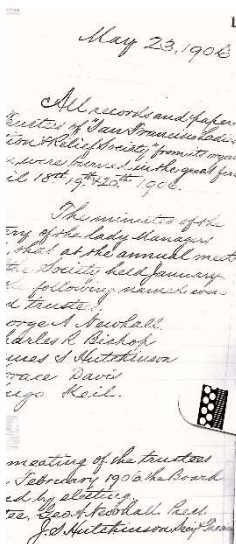 May 23, 1906
All records and paper
Trustees of "San Francisco Ladies
tion & Relief Society" from its organ
were burned in the great fire
il 18th 19th & 20th 1906.
The minutes of the
try of the lady Managers
that at the annual meet
the Society held January
following named were
d trustees,
orge A Newhall
harles R Bishop
ames S Hutchinson
orace Davis
ugo Keil.
meeting of the trustees
February 1906 the Board
ed by electing
Geo A Newhall Prest
J. S Hutchinson Secy & Treas